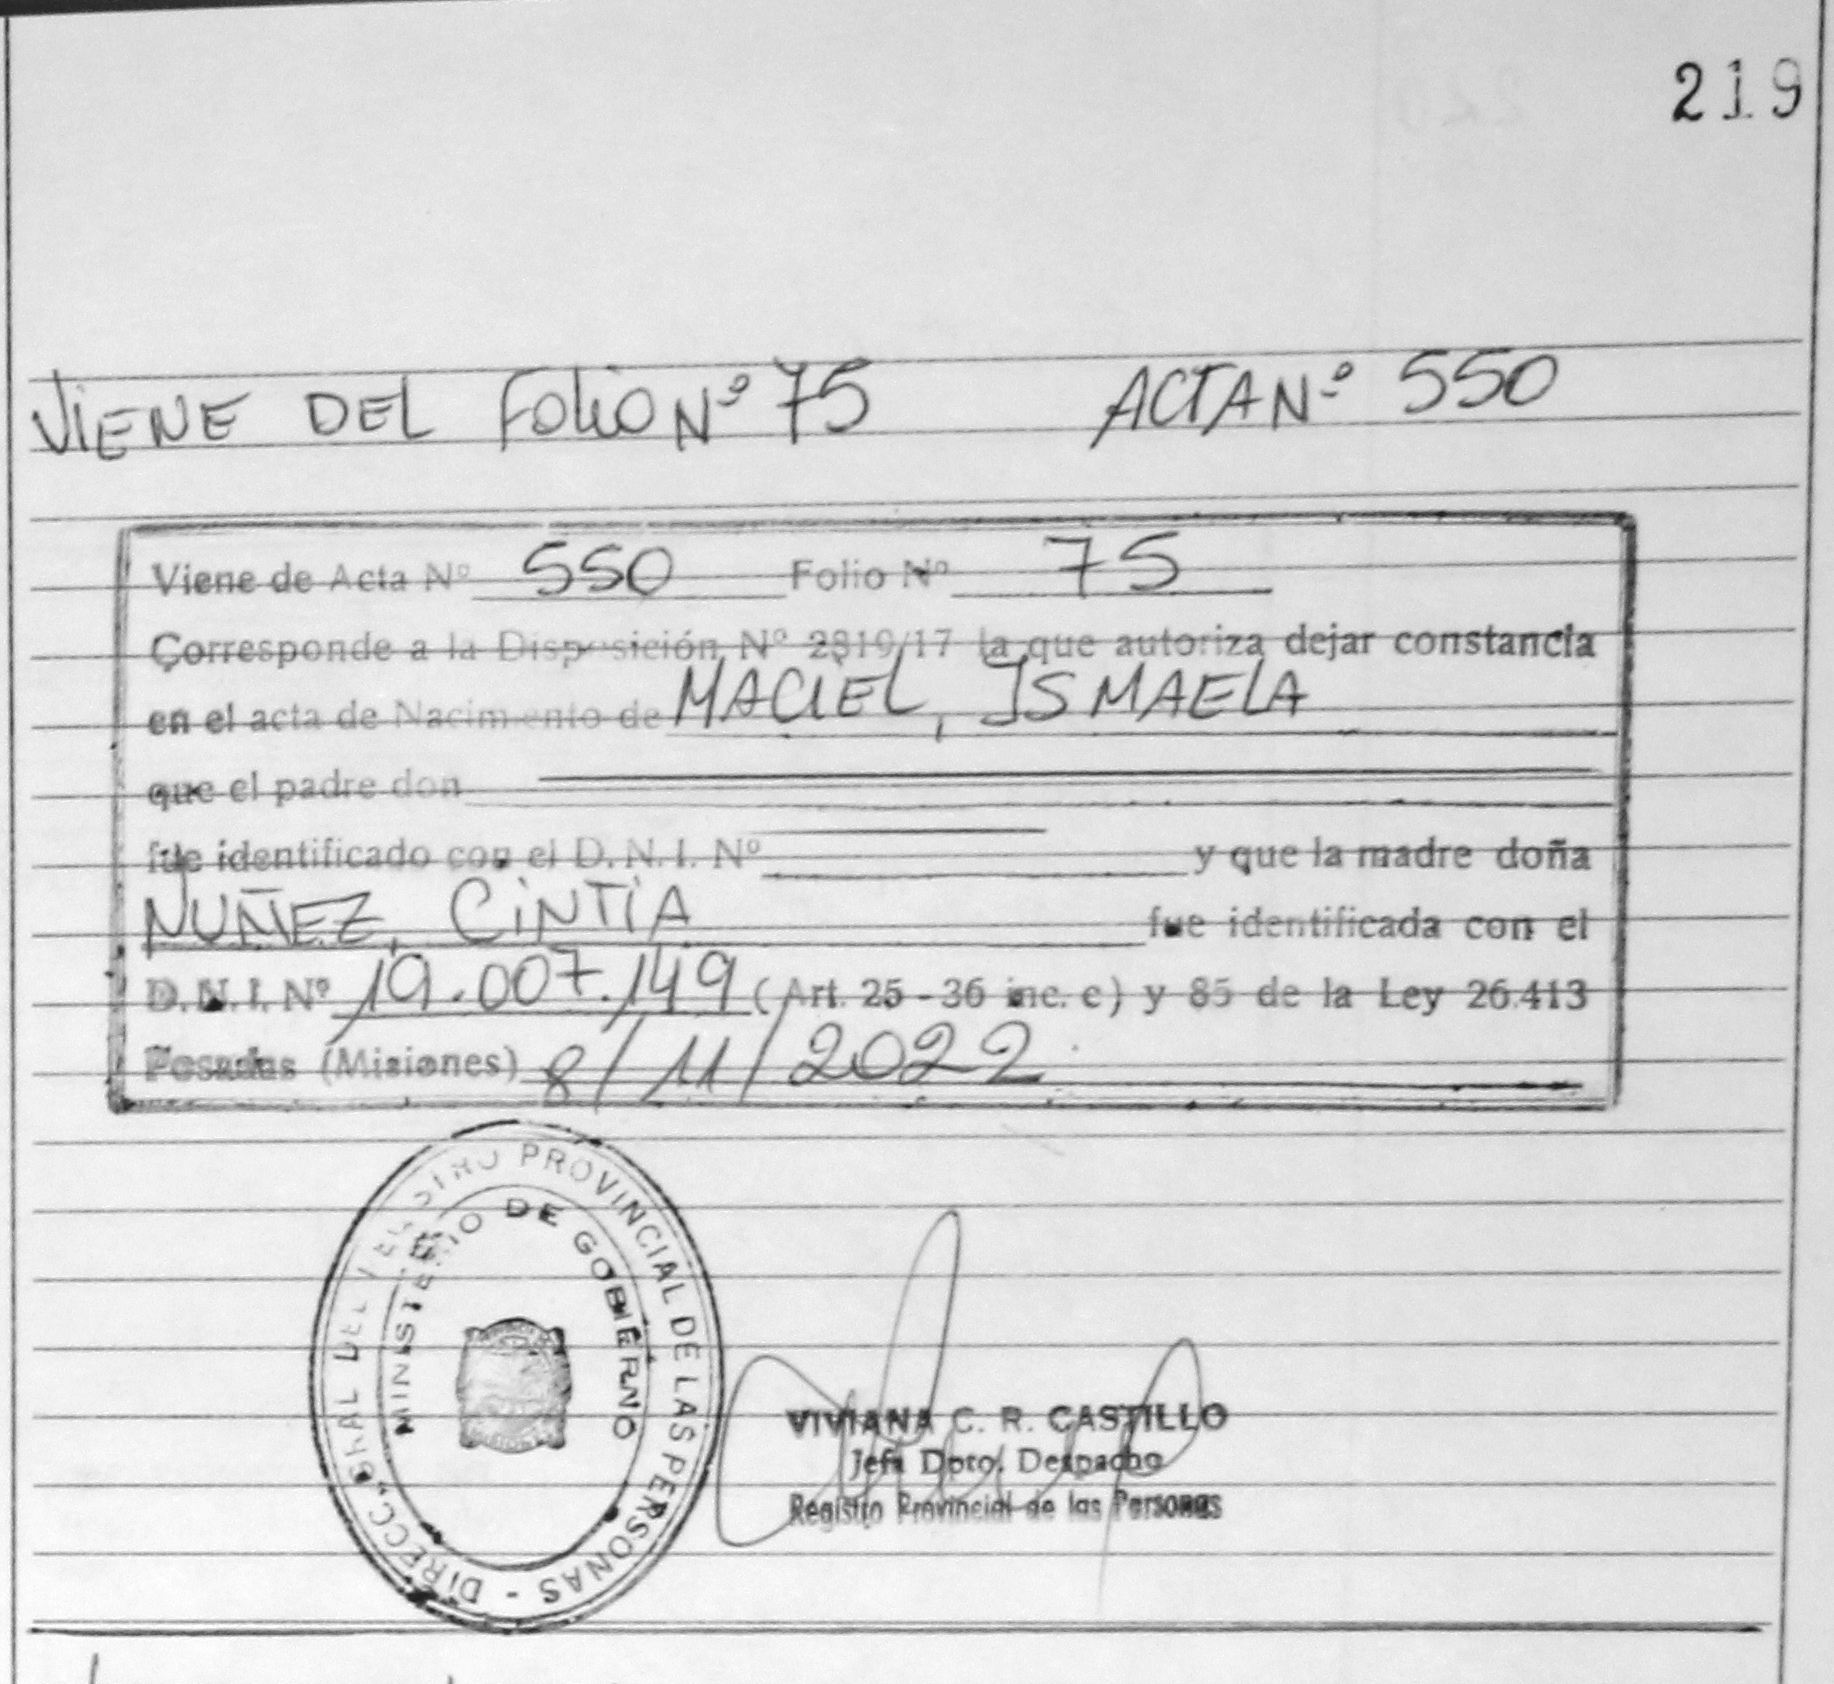 219
VIENE DEL FOLIO Nº 75 ACTA Nº 550
Viene de Acta Nº 550 Folio Nº 75
Corresponde a la Disposición Nº 2819/17 la que autoriza dejar constancia
en el acta de Nacimiento de MACIEL, ISMAELA
que el padre don
fue identificado con el D. N. I. Nº y que la madre doña
NUÑEZ, CINTIA fue identificada con el
D. N. I. Nº 19.007.149 (Art. 25 - 36 inc. c) y 85 de la Ley 26.413
Posadas (Misiones) 8/11/2022
DIRECC. GRAL DEL REGISTRO PROVINCIAL DE LAS PERSONAS -
MINISTERIO DE GOBIERNO
VIVIANA C. R. CASTILLO
Jefa Dpto. Despacho
Registro Provincial de las Personas